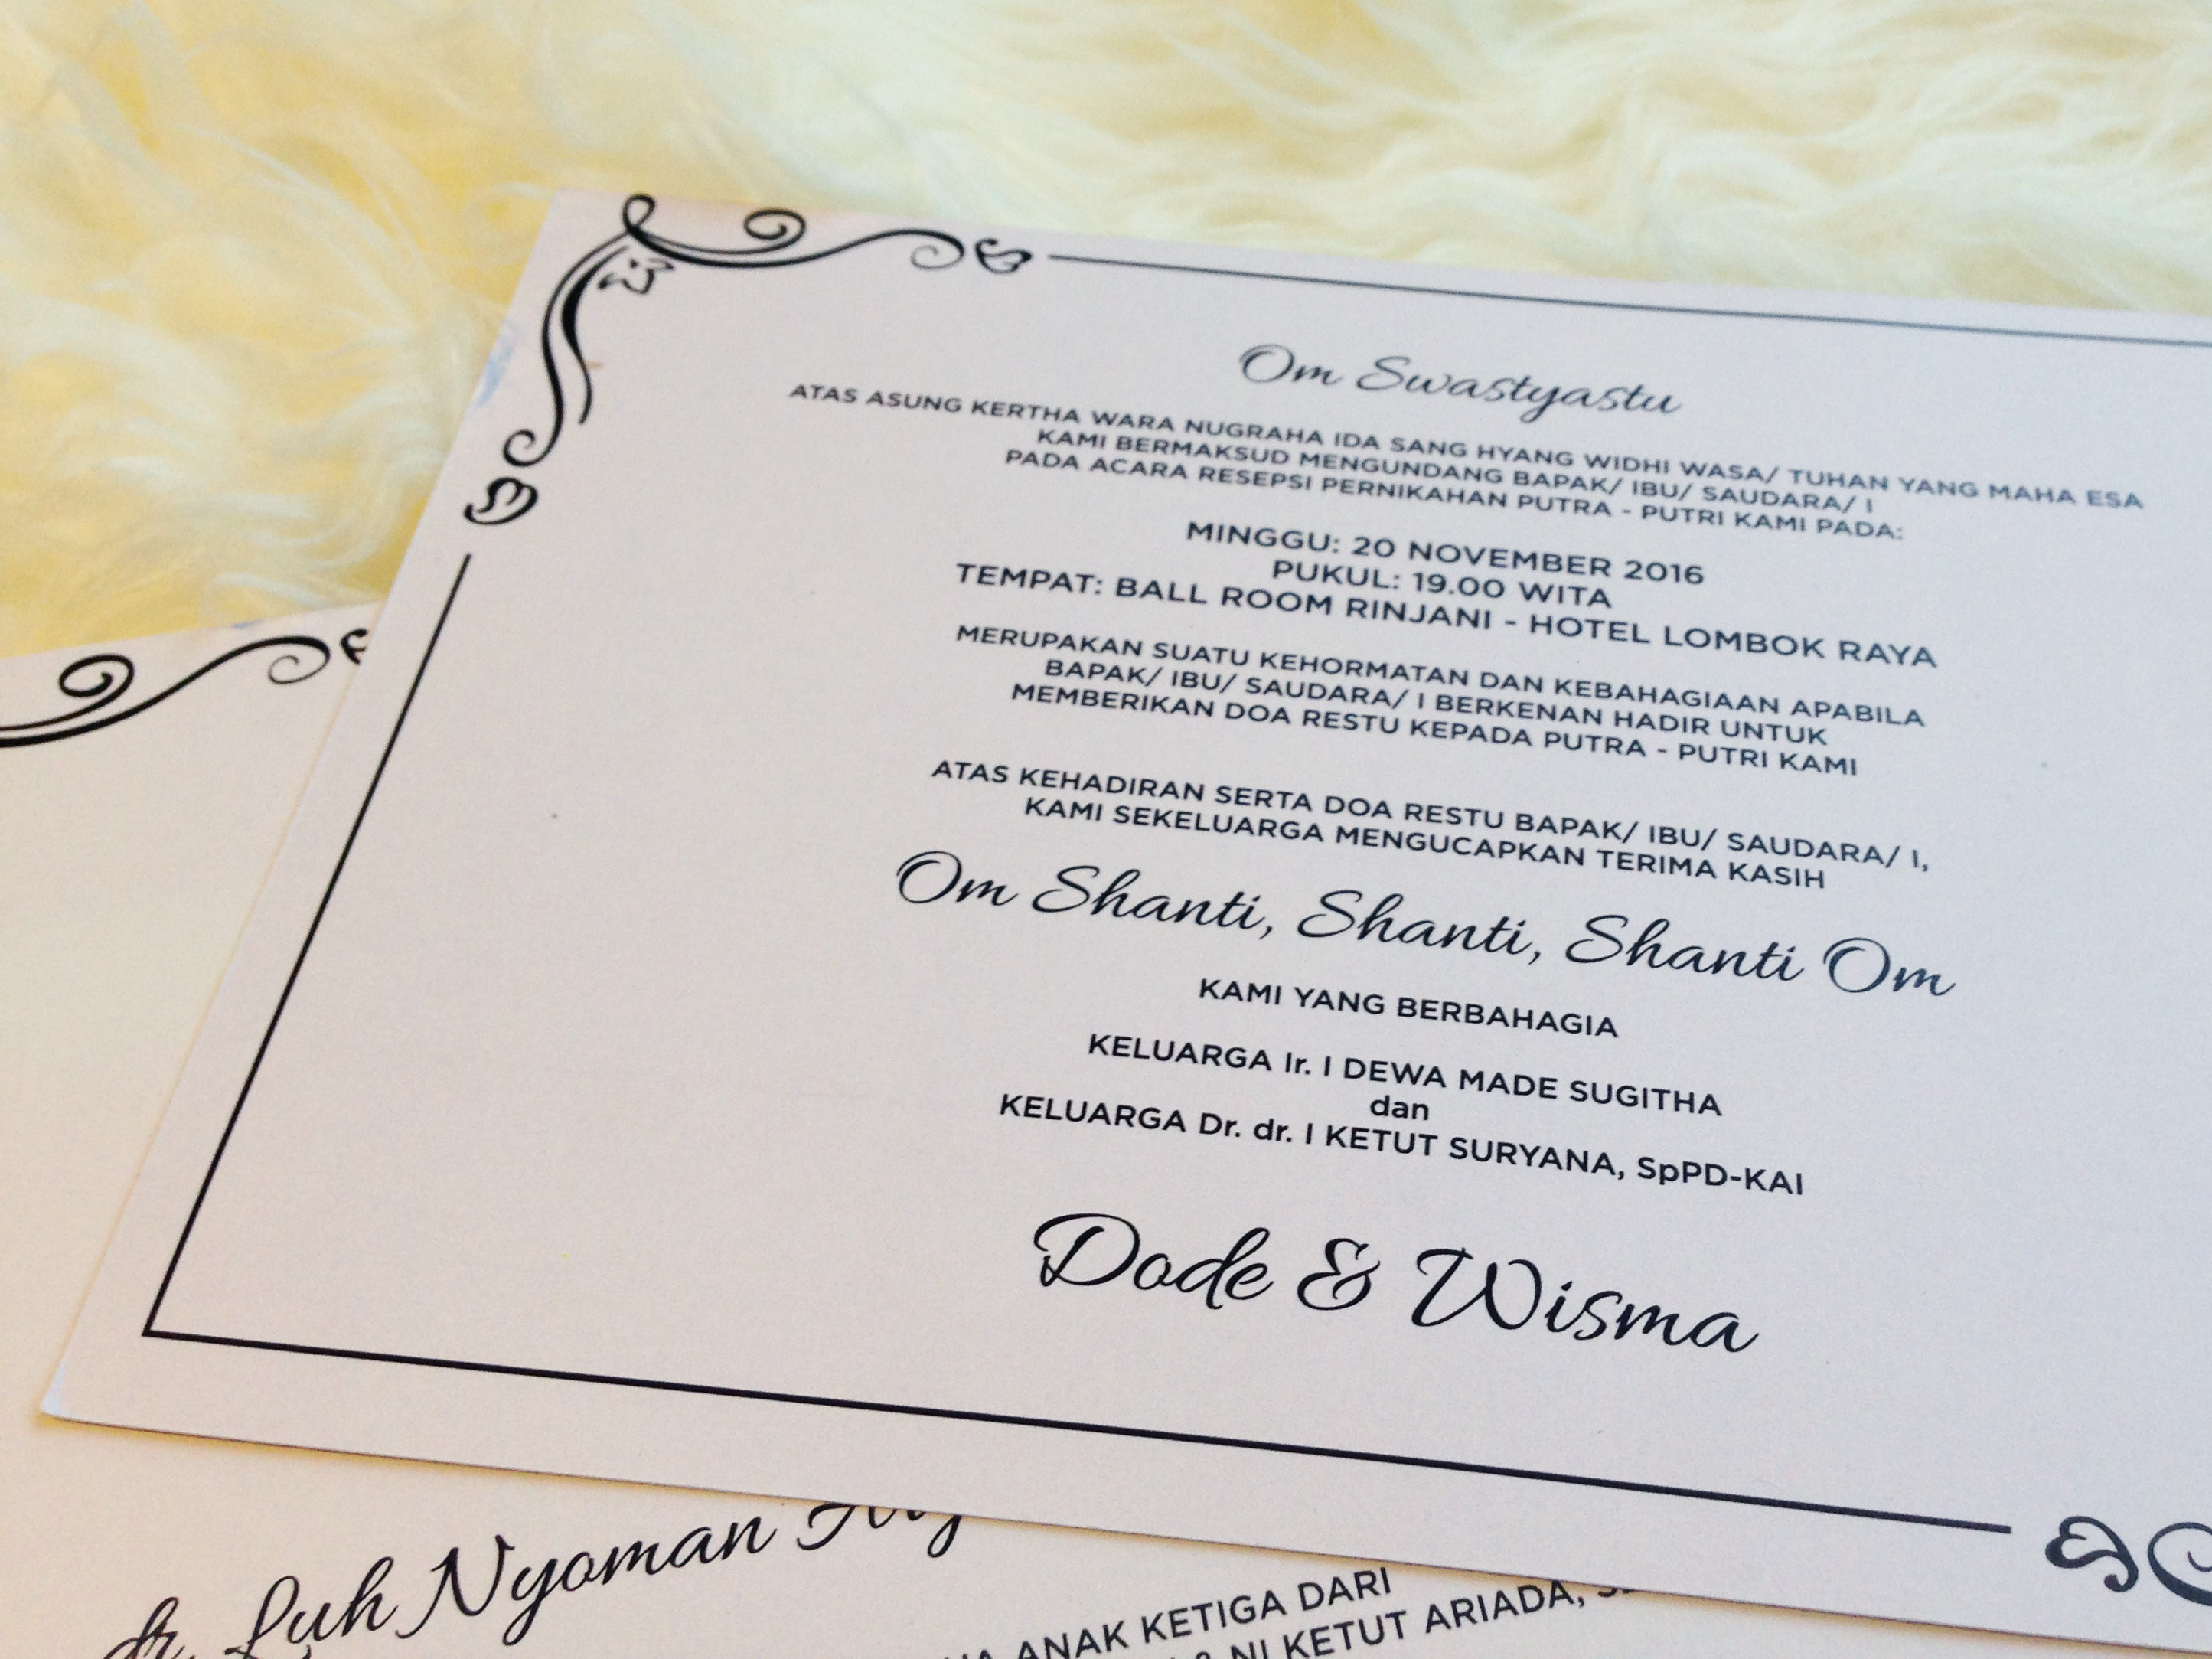 Om Swastyastu
ATAS ASUNG KERTHA WARA NUGRAHA IDA SANG HYANG WIDHI WASA/ TUHAN YANG MAHA ESA
KAMI BERMAKSUD MENGUNDANG BAPAK/ IBU/ SAUDARA/ I
PADA ACARA RESEPSI PERNIKAHAN PUTRA - PUTRI KAMI PADA:
MINGGU: 20 NOVEMBER 2016
PUKUL: 19.00 WITA
TEMPAT: BALL ROOM RINJANI - HOTEL LOMBOK RAYA
MERUPAKAN SUATU KEHORMATAN DAN KEBAHAGIAAN APABILA
BAPAK/ IBU/ SAUDARA/ I BERKENAN HADIR UNTUK
MEMBERIKAN DOA RESTU KEPADA PUTRA - PUTRI KAMI
ATAS KEHADIRAN SERTA DOA RESTU BAPAK/ IBU/ SAUDARA/ I,
KAMI SEKELUARGA MENGUCAPKAN TERIMA KASIH
Om Shanti, Shanti, Shanti Om
KAMI YANG BERBAHAGIA
KELUARGA Ir. I DEWA MADE SUGITHA
dan
KELUARGA Dr. dr. I KETUT SURYANA, SpPD-KAI
Dode & Wisma
dr. Luh Nyoman
ANAK KETIGA DARI
& NI KETUT ARIADA,